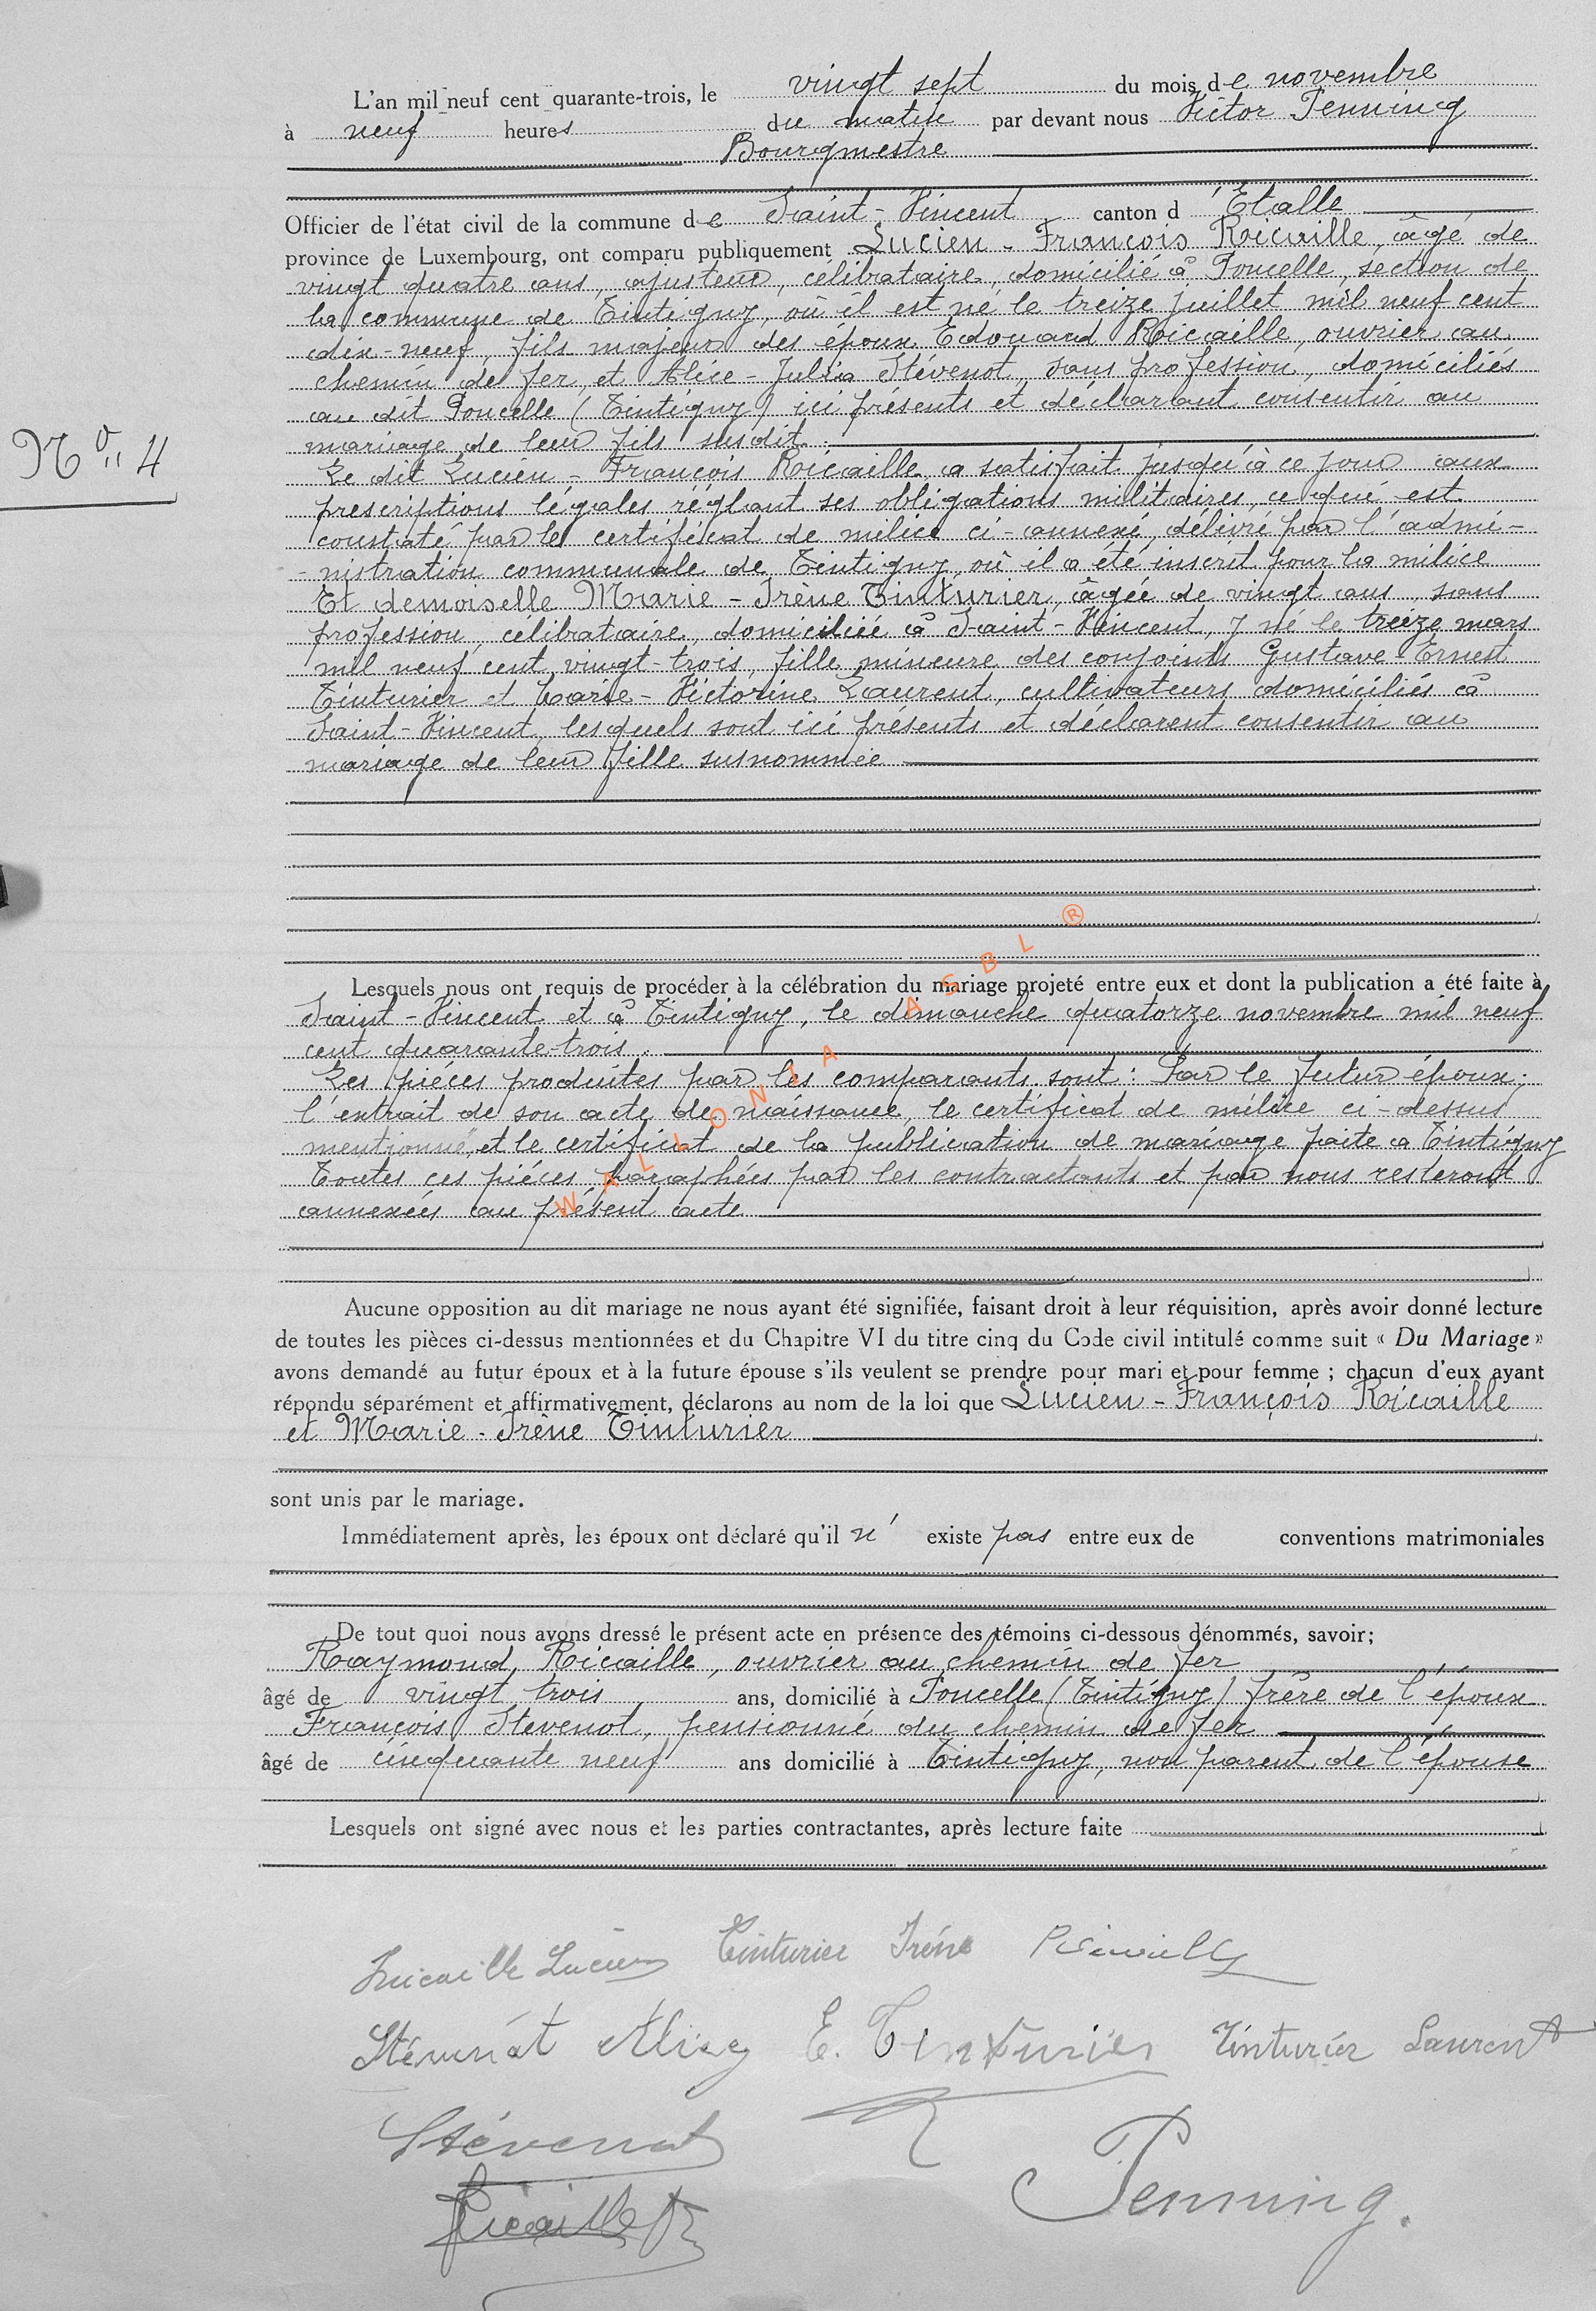 L'an mil neuf cent quarante-trois, le vingt sept du mois de novembre
à neuf heures du matin par devant nous Victor Penning
Bourgmestre
Officier de l'état civil de la commune de Saint-Vincent canton d'Etalle
province de Luxembourg, ont comparu publiquement Lucien-François Ricaille, âgé de
vingt quatre ans, ajusteur, célibataire, domicilié à Poncelle, section de
la commune de Tintigny, où il est né le treize juillet mil neuf cent
dix-neuf, fils majeur des époux Edouard Ricaille, ouvrier au
chemin de fer, et Alice-Julia Stévenot, sans profession, domiciliés
au dit Poncelle (Tintigny) ici présents et déclarant consentir au
mariage de leur fils susdit.
N° 4
Le dit Lucien-François Ricaille a satisfait jusqu'à ce jour aux
prescriptions légales réglant ses obligations militaires, ce qui est
constaté par le certificat de milice ci-annexé, délivré par l'admi-
-nistration communale de Tintigny, où il a été inscrit pour la milice
Et demoiselle Marie-Irène Tinturier, âgée de vingt ans, sans
profession, célibataire, domiciliée à Saint-Vincent, y né le treize mars
mil neuf cent vingt-trois, fille mineure des conjoints Gustave-Ernest
Tinturier et Marie-Victorine Laurent, cultivateurs domiciliés à
Saint-Vincent, lesquels sont ici présents et déclarent consentir au
mariage de leur fille susnommée
Lesquels nous ont requis de procéder à la célébration du mariage projeté entre eux et dont la publication a été faite à
Saint-Vincent et à Tintigny, le dimanche quatorze novembre mil neuf
cent quarante-trois.
Les pièces produites par les comparants sont: Par le futur époux;
l'extrait de son acte de naissance, le certificat de milice ci-dessus
mentionné, et le certificat de la publication de mariage faite à Tintigny
Toutes ces pièces paraphées par les contractants et par nous resteront
annexées au présent acte
WALLONIA ASBL ®
Aucune opposition au dit mariage ne nous ayant été signifiée, faisant droit à leur réquisition, après avoir donné lecture
de toutes les pièces ci-dessus mentionnées et du Chapitre VI du titre cinq du Code civil intitulé comme suit « Du Mariage »
avons demandé au futur époux et à la future épouse s'ils veulent se prendre pour mari et pour femme ; chacun d'eux ayant
répondu séparément et affirmativement, déclarons au nom de la loi que Lucien-François Ricaille
et Marie-Irène Tinturier
sont unis par le mariage.
Immédiatement après, les époux ont déclaré qu'il n'existe pas entre eux de conventions matrimoniales
De tout quoi nous avons dressé le présent acte en présence des témoins ci-dessous dénommés, savoir;
Raymond Ricaille, ouvrier au chemin de fer
âgé de vingt trois ans, domicilié à Poncelle (Tintigny) frère de l'époux
François Stevenot, pensionné du chemin de fer
âgé de cinquante neuf ans domicilié à Tintigny, non parent de l'épouse
Lesquels ont signé avec nous et les parties contractantes, après lecture faite
Ricaille Lucien Tinturier Irène Ricaille
Stévenot Alice E. Tinturier Tinturier Laurent
Stévenot
Ricaille R
Penning.